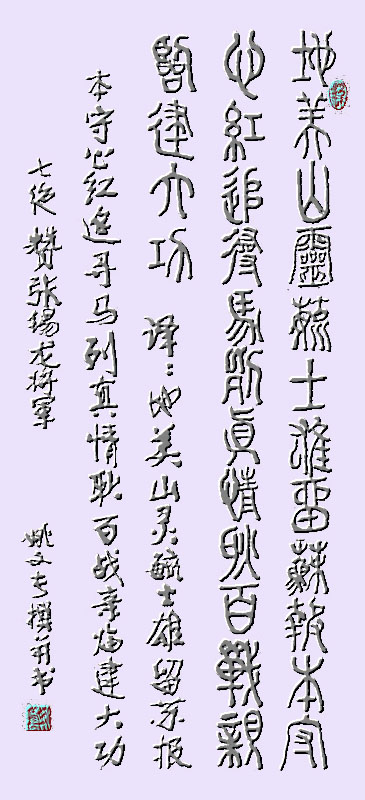 地美山靈毓士雄留蘇報本守
心紅追尋馬列真情耿百戰親
臨建大功 译：地美山灵毓士雄留苏报
本守心红追寻马列真情耿百战亲临建大功
七绝 赞张锡龙将軍 姚文撰并书